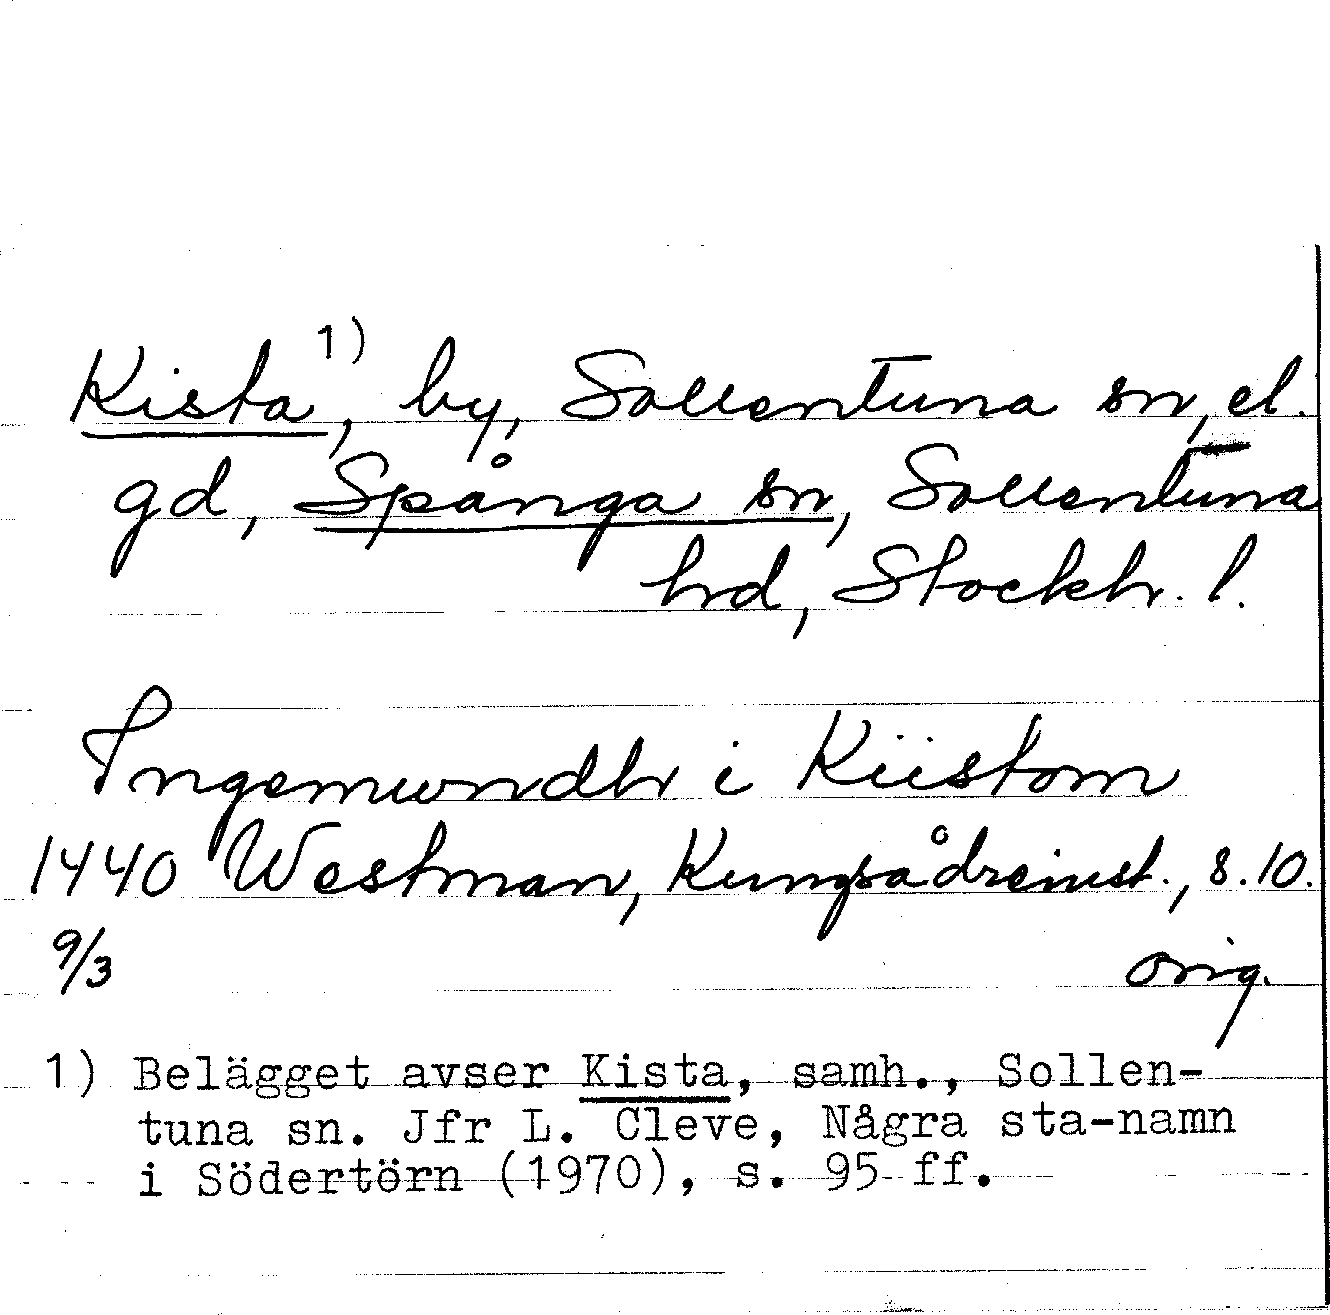 Kista 1), by, Sollentuna sn, el.
gd, Spånga sn, Sollentuna
hd, Stockh. l.
Ingemundh i Kiistom
1440 Westman, Kungsådreinst., s. 10.
9/3 orig.
1) Belägget avser Kista, samh., Sollen-
tuna sn. Jfr L. Cleve, Några sta-namn
i Södertörn (1970), s. 95 ff.